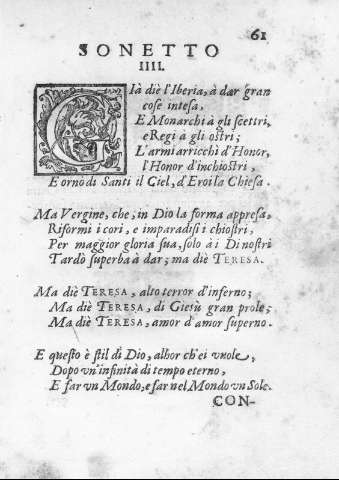 61
SONETTO
IIII.
Già diè l'Iberia, à dar gran
cose intesa,
E Monarchi à gli scettri,
e Regi à gli ostri;
L'armi arricchì d'Honor,
l'Honor d'inchiostri,
E ornò di Santi il Ciel, d'Eroi la Chiesa.
Ma Vergine, che, in Dio la forma appresa,
Riformi i cori, e imparadisi i chiostri,
Per maggior gloria sua, solo à i Dì nostri
Tardò superba à dar; ma diè TERESA.
Ma diè TERESA, alto terror d'inferno;
Ma diè TERESA, di Giesù gran prole;
Ma diè TERESA, amor d'amor superno.
E questo è stil di Dio, alhor ch'ei vuole,
Dopo vn'infinità di tempo eterno,
E far vn Mondo, e far nel Mondo vn Sole.
CON-